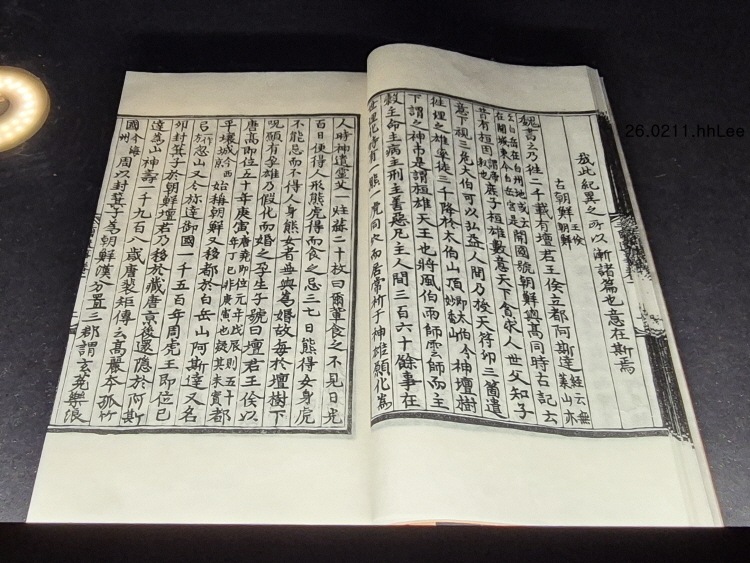 哉此紀異之所以漸諸篇也意在斯焉
古朝鮮 王倹朝鮮
魏書云乃徃二千載有壇君王倹立都阿斯達 經云無葉山亦
云白岳在白州地或云在開城東今白岳宮是 開國號朝鮮與髙同時古記云
昔有桓因 謂帝釋也 庶子桓雄數意天下貪求人世父知子
意下視三危太伯可以弘益人間乃授天符印三箇遣
徃理之雄率徒三千降於太伯山頂 即太伯今妙香山 神壇樹
下謂之神市是謂桓雄天王也將風伯雨師雲師而主
糓主命主病主刑主善惡凡主人間三百六十餘事在
世理化時有一熊一虎同穴而居常祈于神雄願化為
人時神遺靈艾一炷蒜二十枚曰爾軰食之不見日光
百日便得人形熊虎得而食之忌三七日熊得女身虎
不能忌而不得人身熊女者無與為婚故每於壇樹下
呪願有孕雄乃假化而婚之孕生子號曰壇君王倹以
唐髙即位五十年庚寅 唐堯即位元年戊辰則五十年丁巳非庚寅也疑其未實 都
平壤城 今西京 始稱朝鮮又移都於白岳山阿斯達又名
弓 一作方 忽山又今彌達御國一千五百年周虎王即位己
卯封箕子於朝鮮壇君乃移於藏唐京後還隱於阿斯
達為山神壽一千九百八歳唐裴矩傳云髙麗本孤竹
國 今海州 周以封箕子為朝鮮漢分置三郡謂玄菟樂浪
26.0211.hhLee